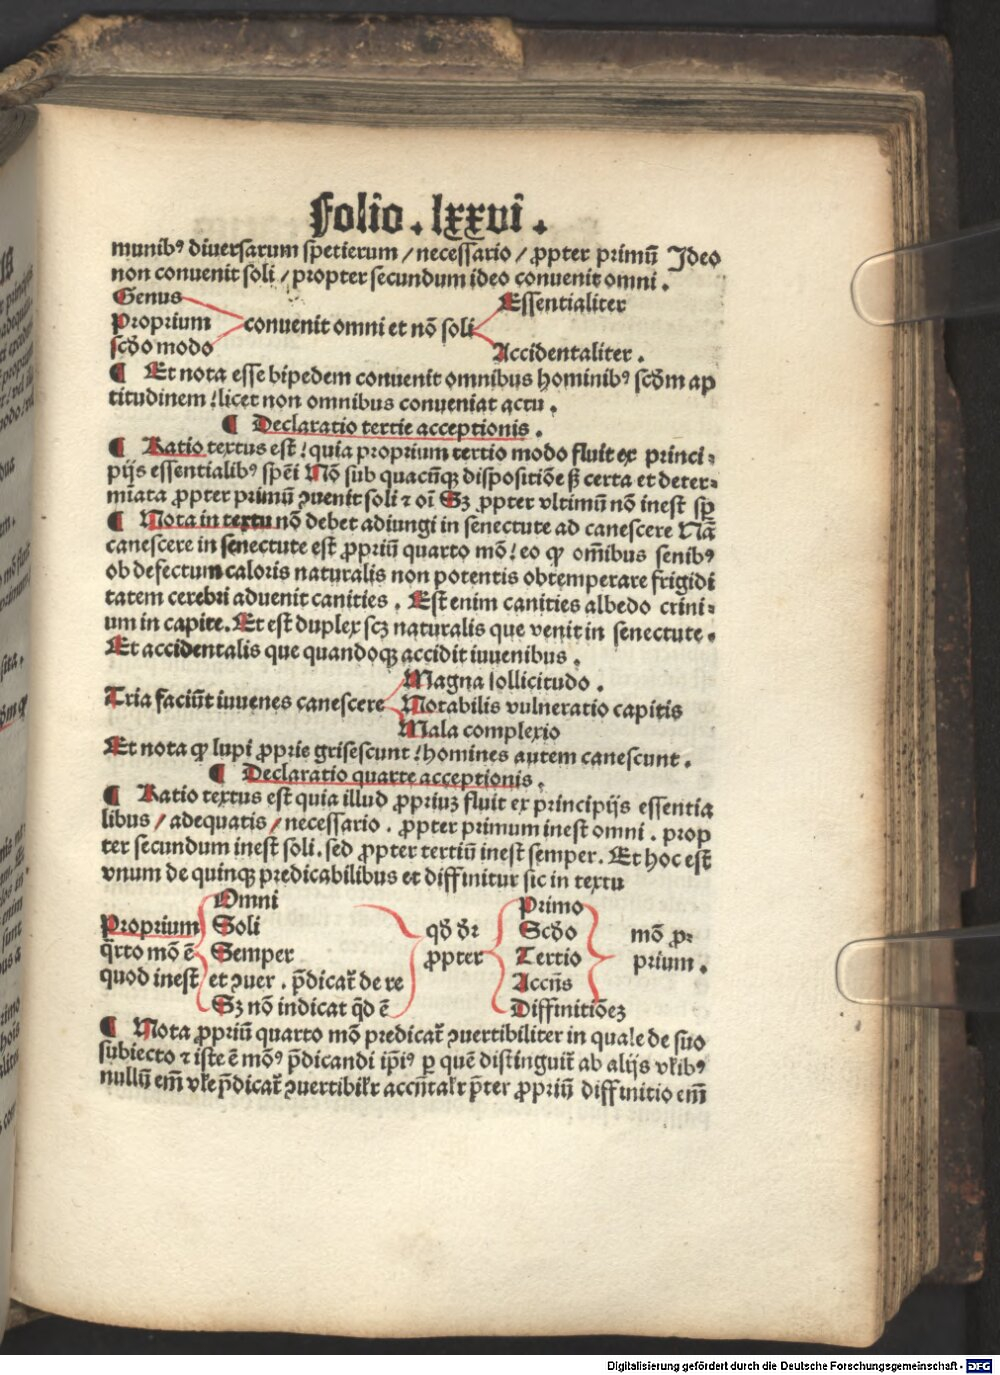 Folio . lxxvi .
munibꝰ diuersarum spetierum / necessario / ꝓpter primū Ideo
non conuenit soli / propter secundum ideo conuenit omni .
Genus
Proprium
scd̄o modo
conuenit omni et nō soli
Essentialiter
Accidentaliter .
¶ Et nota esse bipedem conuenit omnibus hominibꝰ scd̄m ap
titudinem / licet non omnibus conueniat actu .
¶ Declaratio tertie acceptionis .
¶ Ratio textus est / quia proprium tertio modo fluit ex princi⸗
pijs essentialibꝰ spēi Nō sub quacūqꝫ dispositiōe sꝫ certa et deter⸗
miata ꝓpter primū ꝯuenit soli ⁊ oī Sꝫ ꝓpter vltimū nō inest sꝑ
¶ Nota in textu nō debet adiungi in senectute ad canescere Nā
canescere in senectute est ꝓpriū quarto mō / eo ꝙ om̄ibus senibꝰ
ob defectum caloris naturalis non potentis obtemperare frigidi
tatem cerebri aduenit canities . Est enim canities albedo crini⸗
um in capite . Et est duplex scꝫ naturalis que venit in senectute .
Et accidentalis que quandoqꝫ accidit iuuenibus .
Tria faciūt iuuenes canescere
Magna sollicitudo .
Notabilis vulneratio capitis
Mala complexio
Et nota ꝙ lupi ꝓprie grisescunt / homines autem canescunt .
¶ Declaratio quarte acceptionis .
¶ Ratio textus est quia illud ꝓpriuꝫ fluit ex principijs essentia
libus / adequatis / necessario . ꝓpter primum inest omni . prop
ter secundum inest soli . sed ꝓpter tertiū inest semper . Et hoc est
vnum de quinqꝫ predicabilibus et diffinitur sic in textu
Proprium
q̄rto mō ē
quod inest
Omni
Soli
Semper
et ꝯuer . p̄dicat̄ de re
Sꝫ nō indicat qd̄ ē
qd̄ dr̄
ꝓpter
Primo
Scd̄o
Tertio
Accn̄s
Diffinitiōeꝫ
mō ꝓꝛ
prium .
¶ Nota ꝓpriū quarto mō predicat̄ ꝯuertibiliter in quale de suo
subiecto ⁊ iste ē modꝰ p̄dicandi ip̄iꝰ ꝑ quē distinguit̄ ab alijs vl̄ibꝰ
nullū em̄ vl̄e p̄dicat̄ ꝯuertibil̄r accn̄tal̄r p̄ter ꝓpriū diffinitio em̄
Digitalisierung gefördert durch die Deutsche Forschungsgemeinschaft - DFG